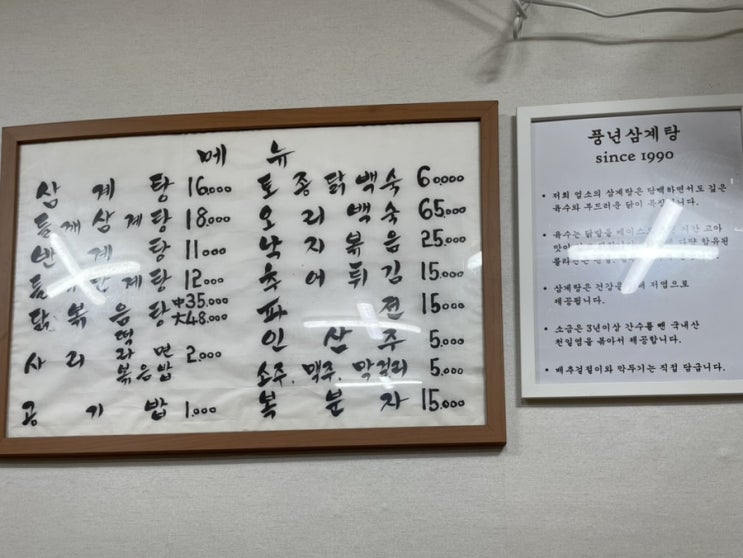 메 뉴
삼 계 탕 16.000
들깨 삼계탕 18.000
반 계 탕 11.000
들깨 반계탕 12.000
닭 볶 음 탕 中35.000
大48.000
사 리 떡
라 면
볶음밥
2.000
공 기 밥 1.000
토종닭백숙 60.000
오 리 백 숙 65.000
낙 지 볶 음 25.000
추 어 튀 김 15.000
파 전 15.000
인 삼 주 5.000
소주, 맥주, 막걸리 5.000
복 분 자 15.000
풍년삼계탕
since 1990
• 저희 업소의 삼계탕은 담백하면서도 깊은
육수와 부드러운 닭이
• 육수는 닭발을 고아
맛이 함유된
콜라겐
• 삼계탕은 건강을 저염으로
제공됩니다.
• 소금은 3년이상 간수를 뺀 국내산
천일염을 볶아서 제공합니다.
• 배추겉절이와 깍두기는 직접 담급니다.